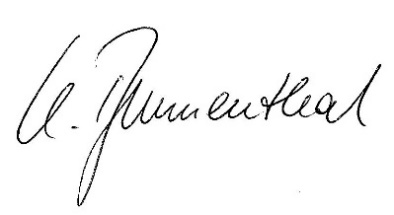 U. Blumenthal